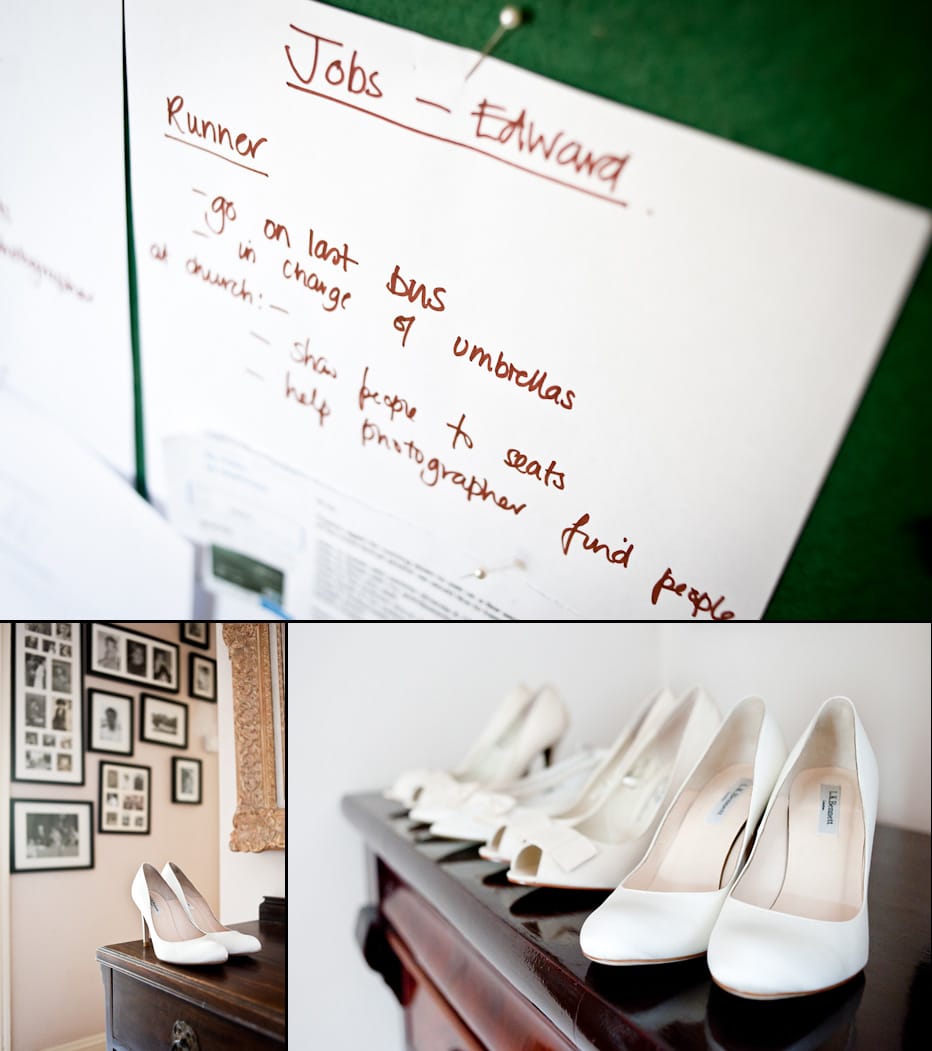 Jobs – Edward
Runner
– go on last bus
– in change of umbrellas
at church: –
– show people to seats
– help photographer find people
photographer
L.K.Bennett
L.K.Bennett